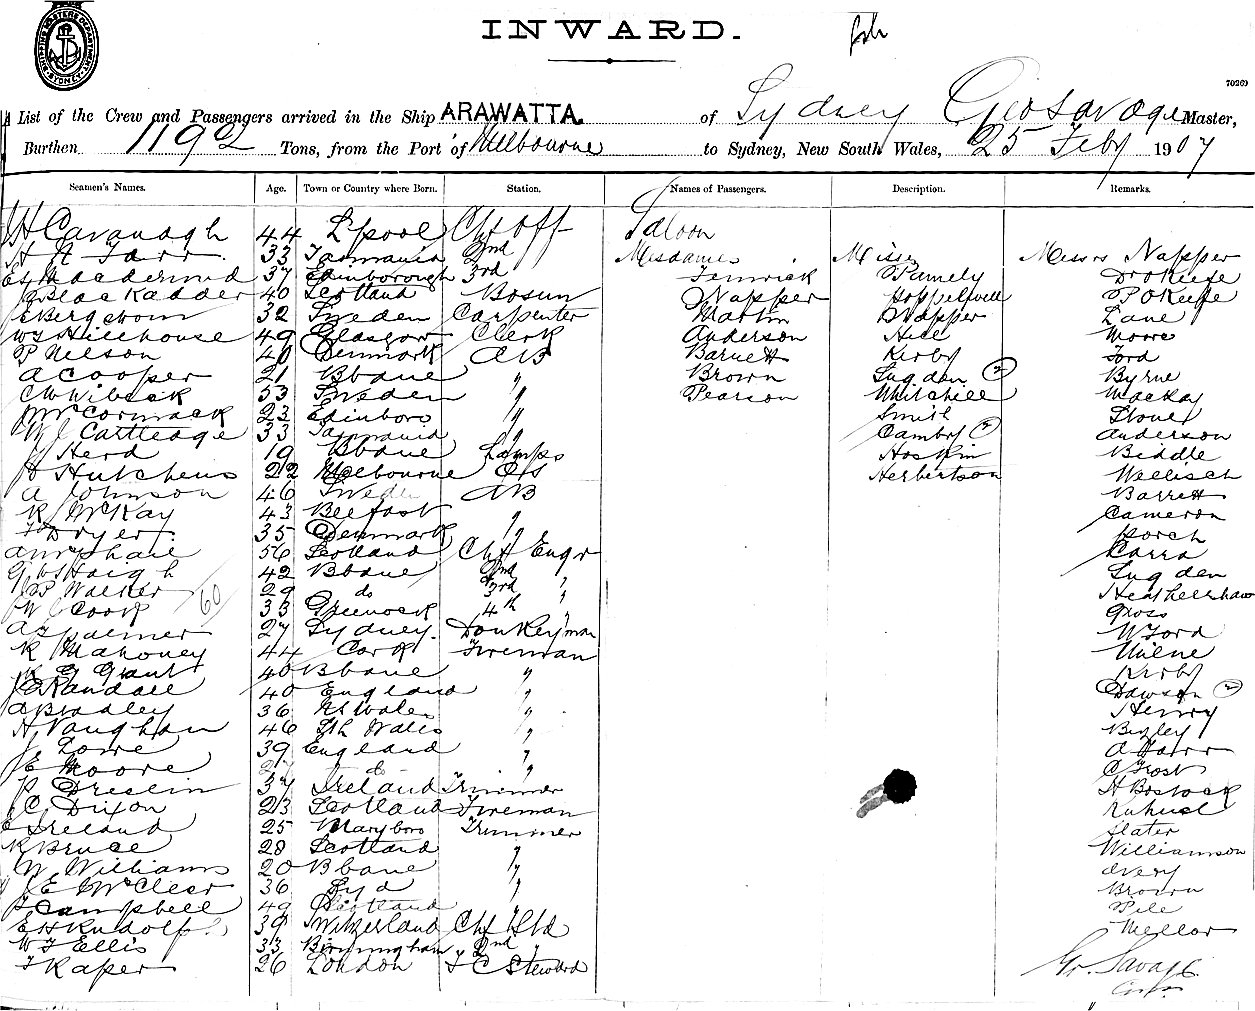 SHIPPING MASTERS DEPARTMENT SYDNEY
INWARD.
70269
A List of the Crew and Passengers arrived in the Ship ARAWATTA of Sydney Geo Savage Master,
Burthen 1192 Tons, from the Port of Melbourne to Sydney, New South Wales, 25 Feby 1907
Seamen's Names. Age. Town or Country where Born. Station. Names of Passengers. Description. Remarks.
H Cavanagh 44 L'pool Chf Off Saloon
33 Tasmania 2nd Mesdames Misses Messrs Napper
Macdermid 37 Edinborough 3rd Fenwick Pamely Dr O'Keefe
Blackadder 40 Scotland Bosun Napper Hoppelwell P O'Keefe
E Bergstrom 32 Sweden Carpenter Martin Napper Lane
WS Hillhouse 49 Glasgow Clerk Anderson Hill Moore
P Nelson 40 Denmark AB Barnett Kirby Ford
A Cooper 21 Bbane " Brown Sugden 2 Byrne
C Wibeck 33 Sweden " Pearson Whitchill Mackay
McCormack 23 Edinboro " Smith
W J Cartledge 33 Tasmania " Cambry 2 Anderson
J Herd 19 Bbane Lamps Hoskin Biddle
H Hutchens 22 Melbourne OS Herbertson Wellisch
A Johnson 46 Sweden AB Barrett
R McKay 43 Belfast " Cameron
F Dryer 35 Denmark " Porch
A McPhail 56 Scotland Chf Engr Carra
G W Haigh 42 Bbane 2nd " Sugden
J P Walker 29 do 3rd " Heathershaw
W J Cook 60 33 Greenock 4th " Gross
A Spaemer 27 Sydney Donkeyman W Ford
R Mahoney 44 Cork Fireman Milne
R G Grant 40 Bbane " Kirby
J E Randall 40 England " Dawson 2
A Bradley 36 N S Wales " Henry
H Vaughan 46 Sth Wales " Bizley
J Lowe 39 England " A Harr
J E Moore do " C Frost
P Breslin 37 Ireland Trimmer H Bostock
J C Dixon 23 Scotland Fireman
E Ireland 25 Maryboro Trimmer Slater
R Bruce 28 Scotland " Williamson
W Williams 20 Bbane " Avery
J E McCleer 36 Syd " Brown
J Campbell 49 Scotland Pile
E H Rudolf 39 Switzerland Chf Std Mellor
W F Ellis 33 Birmingham 2nd "
F Raper 26 London F C Steward Geo. Savage